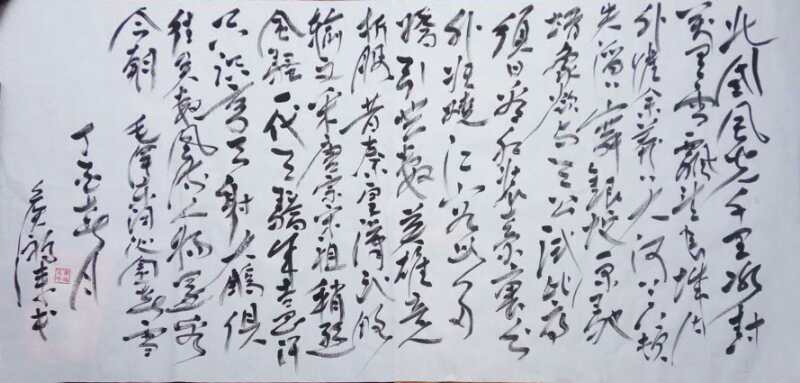 北国风光千里冰封
万里雪飘望长城内
外惟余莽莽大河上下顿
失滔滔山舞银蛇原驰
蜡象欲与天公试比高
须日看红装素裹分
外妖娆江山如此多
娇引无数英雄竞
折腰昔秦皇汉武略
输文采唐宗宋祖稍逊
风骚一代天骄成吉思汗
只识弯弓射大雕俱
往矣数风流人物还看
今朝 毛泽东词沁园春雪
丁酉月
书